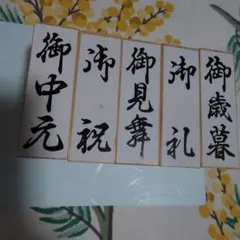 御中元
御祝
御見舞
御礼
御歳暮